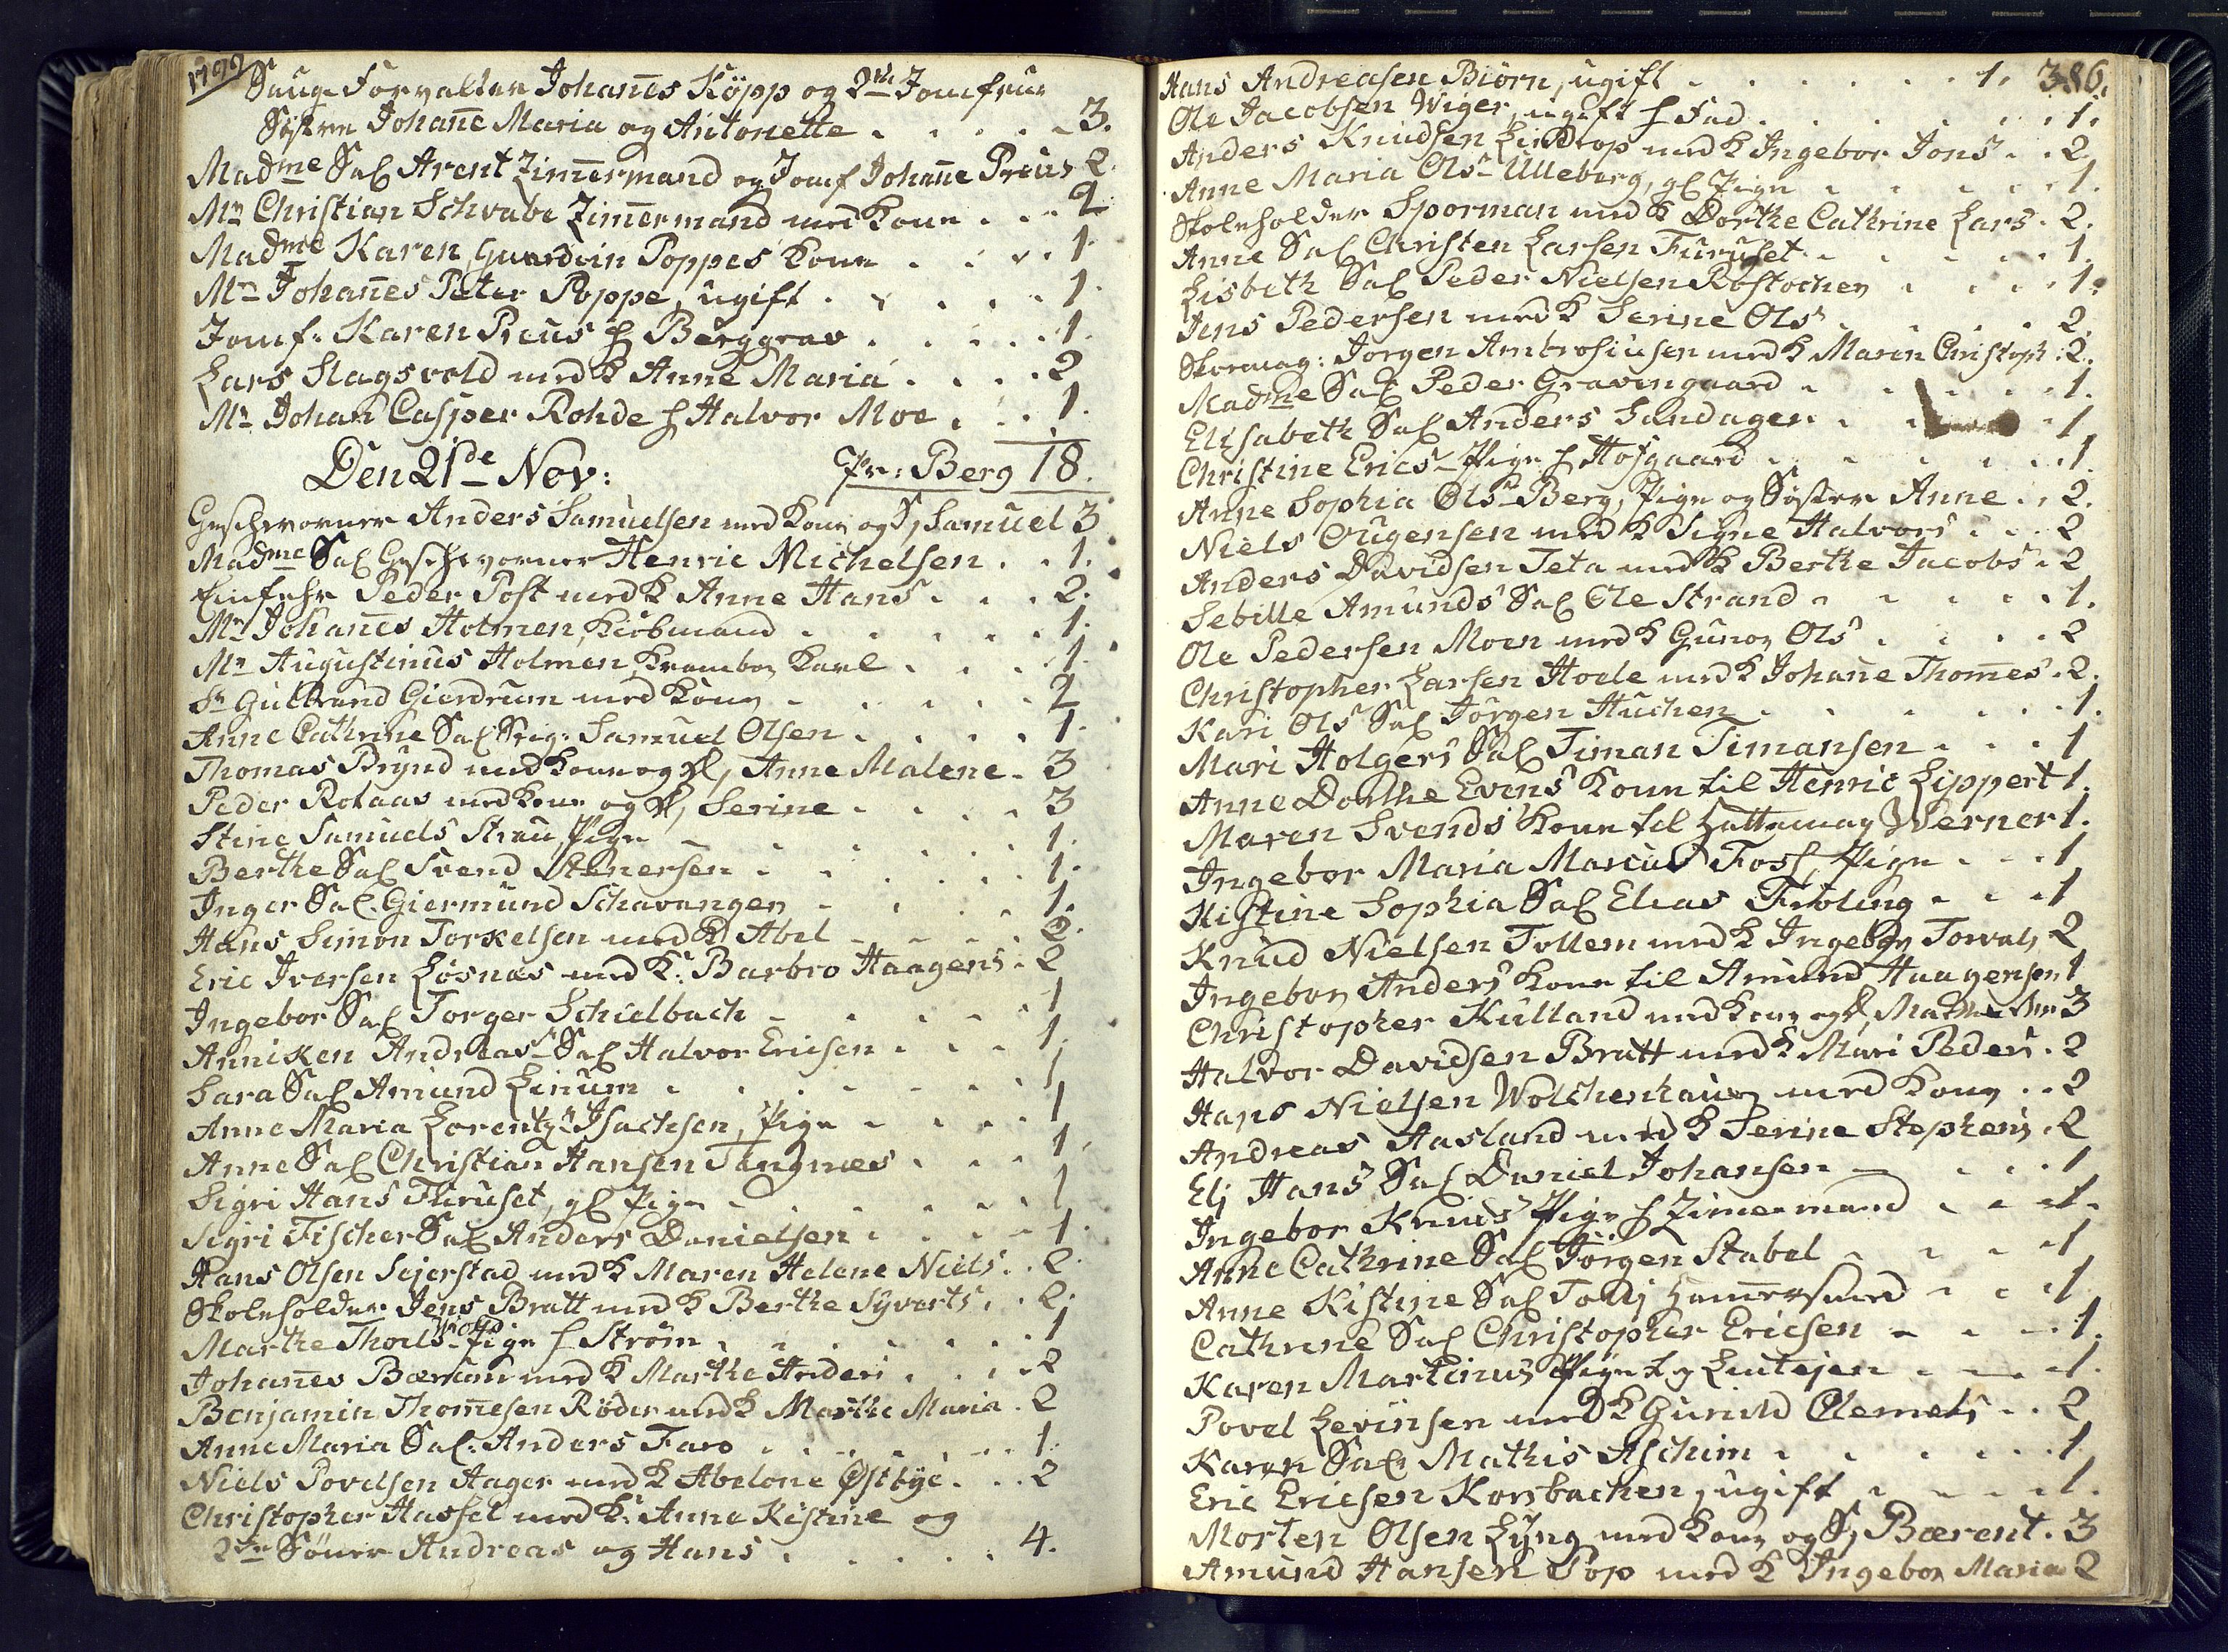 1799
Saug-Forvalter Johan̄es Köpp og 2de Jomfrue
Söstre Johan̄e Maria og Antonette . . . . 3.
Madme Sal Arent Zim̄ermand og Jomf Johan̄e Preus 2.
Mr Christian Schvabe Zim̄ermand med Kone . . . 2
Madme Karen, Guardein Poppes Kone . . . . 1.
Mr Johan̄es Peter Poppe, ugift . . . . . 1.
Jomf. Karen Preus h Berggrav . . . . 1.
Lars Slagsvold med K Anne Maria . . . . 2
Mr Johan Casper Rohde h Halvor Moe . . . 1.
Den 21de Nov: Pr: Berg 18.
Geschvorner Anders Samuelsen med Kone og S, Samuel 3
Madme Sal Geschvorner Henric Michelsen . . 1.
Einfahr Peder Post med K Anne Hans . . . 2.
Mr Johan̄es Holmen, Kiöbmand . . . . . 1.
Mr Augustinus Holmen Krambod Karl . . . 1.
Sr Gulbrand Gierdrum med Kone . . . . . 2
Anne Cathrine Sal Stig: Samuel Olsen . . . . 1.
Thomas Brynd med Kone og D, Anne Malene . 3
Peder Rolaas med Kone og D, Serine . . . . 3
Stine Samuels Strau, Pige . . . . . 1.
Berthe Sal Svend Stenersen . . . . . . 1.
Inger Sal. Giermund Schavangen . . . . 1.
Hans Simon Torkelsen med K Abel . . . . 2.
Eric Iversen Løsnæs med K: Barbro Haagens . 2
Ingebor Sal Torger Schielbach . . . . . 1
Anniken Andreas Sal Halvor Ericsen . . . 1.
Sara Sal Amund Linum . . . . . . 1
Anne Maria Lorentz Isachsen, Pige . . . . 1
Anne Sal Christian Hansen Tangnæs . . . 1.
Sigri Hans Furuset, gl Pige . . . . . 1
Sigri Fischer Sal Anders Danielsen . . . . 1.
Hans Olsen Sejerstad med K Maren Helene Niels . . 2.
Skoleholder Jens Bratt med K Berthe Syverts . . 2.
Marthe Thords Wiog Pige h Ström . . . . . . 1
Johan̄es Bærum med K Marthe Anders . . . . 2
Benjamin Thom̄esen Røder med K Marthe Maria . 2
Anne Maria Sal. Anders Faro . . . . . . 1.
Niels Povelsen Aager med K Abelone Østbye . . . 2
Christopher Hassel med K: Anne Kistine og
2de Sönner Andreas og Hans . . . . . 4.
386.
Hans Andreasen Biörn, ugift . . . . . . 1.
Ole Jacobsen Wiger, ugift h Fad . . . . . . 1.
Anders Knudsen Lindtop med K Ingebor Jons . . 2.
Anne Maria Ols Ulleberg, gl Pige . . . . . 1.
Skoleholder Sporman med K Dorthe Cathrine Lars . 2.
Anne Sal Christen Larsen Furuset . . . . . 1.
Lisbeth Sal Peder Nielsen Rostochen . . . . 1.
Jens Pedersen med K Serine Ols . . . . . 2.
Skoemag: Jorgen Ambrosiusen med K Maren Christoph: 2.
Madme Sal Peder Gravengaard . . . . . . 1.
Elisabeth Sal Anders Sandagen . . . . 1
Christine Erics Pige h Hofgaard . . . . . . 1.
Anne Sophia Ols Berg, Pige og Söster Anne . . 2.
Niels Ougensen med K Signe Halvors . . . 2
Anders Davidsen Teta med K Berthe Jacobs . 2
Sebille Amunds Sal Ole Strand . . . . . 1.
Ole Pedersen Moen med K Gunor Ols . . . . 2
Christopher Larsen Hoele med K Johan̄e Thom̄es . 2.
Kari Ols Sal Jörgen Huchen . . . . . . 1.
Mari Holgers Sal Timan Timansen . . . 1
Anne Dorthe Evens Kone til Henric Lippert 1.
Maren Svends Kone til Hattemag Werner 1.
Ingebor Maria Marcus Foss, Pige . . . 1
Kistine Sophia Sal Elias Fröling . . . 1
Knud Nielsen Tollem med K Ingebor Torvals 2
Ingebor Anders Kone til Amund Haagensen 1
Christopher Kulland med Kone og D, Mathe 3
Halvor Davidsen Bratt med K Mari Peders . 2
Hans Nielsen Wolchenhauer med Kone . . 2
Andreas Hasland med K Serine Stephens . 2
Elj Hans Sal Daniel Johansen . . . . 1
Ingebor Knuds Pige h Zim̄ermand . . . 1.
Anne Cathrine Sal Jörgen Stabel . . . . 1
Anne Kistine Sal Ham̄ersmed . . . 1.
Cathrine Sal Christopher Ericsen . . . 1.
Karen Martinus Pige . . . 1.
Povel Levinsen med K Gunild Clemets . . 2
Karen Sal Mathis Aschim . . . . . . 1
Eric Ericsen Korsbachen, ugift . . . . 1.
Morten Olsen Lyng med Kone og S, Bærent . 3
Amund Hansen Top med K Ingebor Maria 2